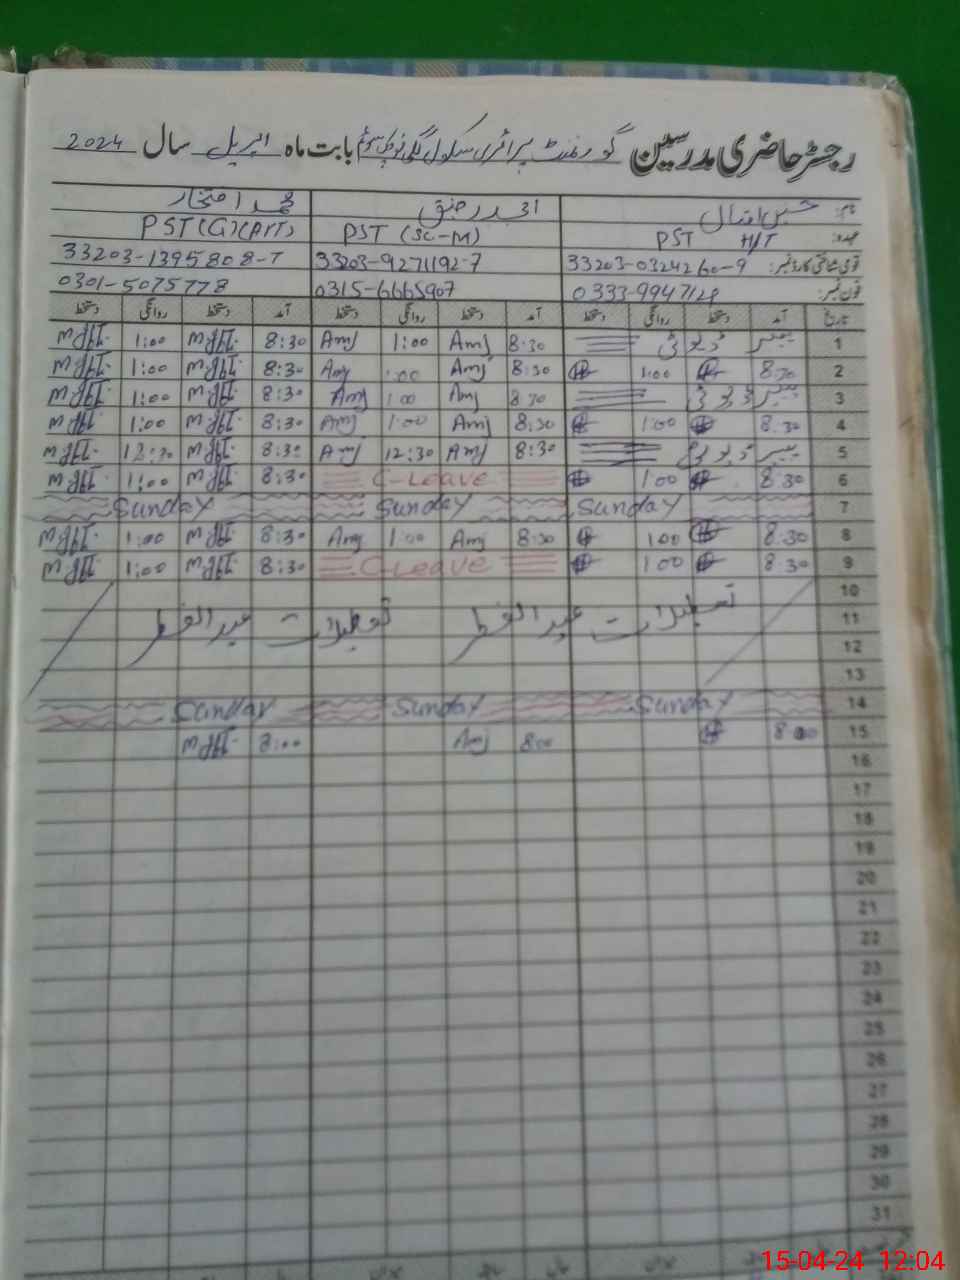 رجسٹر حاضری مدرسین گورنمنٹ پرائمری سکول بابت ماہ اپریل سال 2024
نام: حسین اقبال امجد رفیق محمد افتخار
عہدہ: PST H/T PST (SC-M) PST (G)(Art)
قومی شناختی کارڈ نمبر: 33203-0324260-9 33203-9271192-7 33203-1395808-7
فون نمبر: 0333-9947129 0315-6665907 0301-5075778
تاریخ آمد دستخط روانگی دستخط آمد دستخط روانگی دستخط آمد دستخط روانگی دستخط
1 پیپر ڈیوٹی 8:30 Amj 1:00 Amj 8:30 1:00
2 8:30 1:00 8:30 Amj 1:00 Amj 8:30 1:00
3 پیپر ڈیوٹی 8:30 Amj 1:00 Amj 8:30 1:00
4 8:30 1:00 8:30 Amj 1:00 Amj 8:30 1:00
5 پیپر ڈیوٹی 8:30 Amj 12:30 Amj 8:30 12:30
6 8:30 1:00 C-Leave 8:30 1:00
7 Sunday Sunday Sunday
8 8:30 1:00 8:30 Amj 1:00 Amj 8:30 1:00
9 8:30 1:00 C-Leave 8:30 1:00
10
11 تعطیلات عید الفطر تعطیلات عید الفطر
12
13
14 Sunday Sunday Sunday
15 8:00 8:00 Amj 8:00
16
17
18
19
20
21
22
23
24
25
26
27
28
29
30
31
15-04-24 12:04